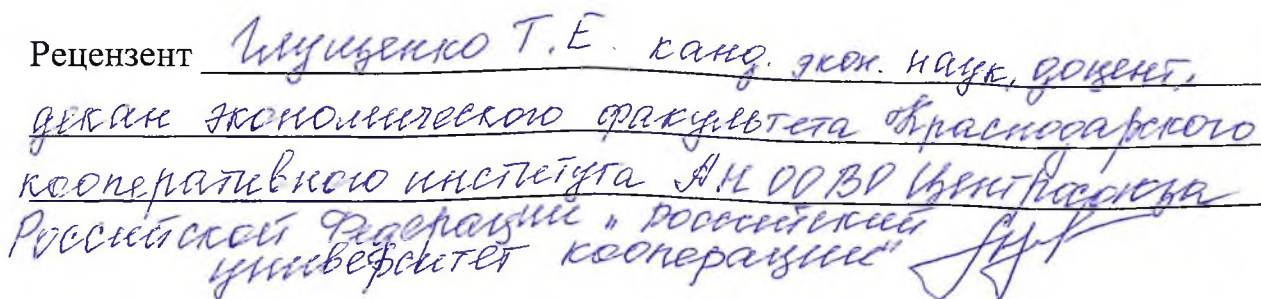 Рецензент Глущенко Т.Е. канд. экон. наук, доцент,
декан экономического факультета Краснодарского
кооперативного института АН ООВО Центросоюза
Российской Федерации „Российский
университет кооперации"